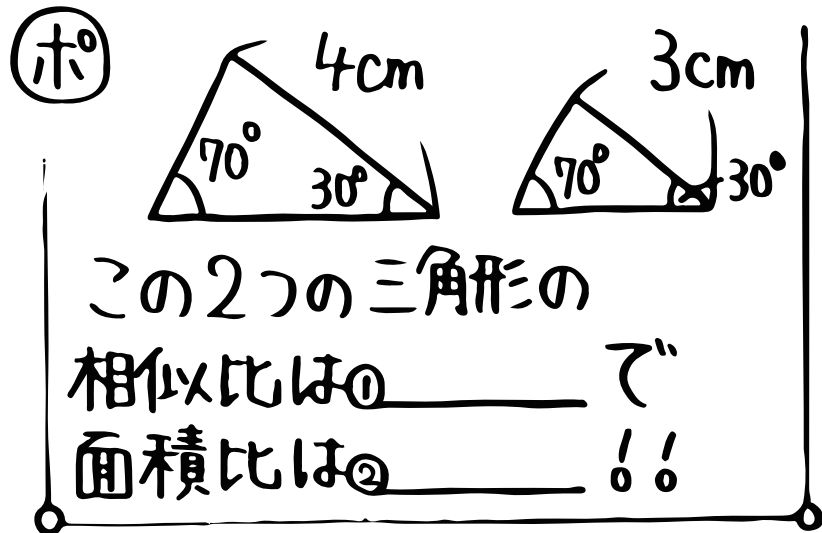 ポ
4cm 3cm
70° 30° 70° 30°
この2つの三角形の
相似比は①______で
面積比は②______!!